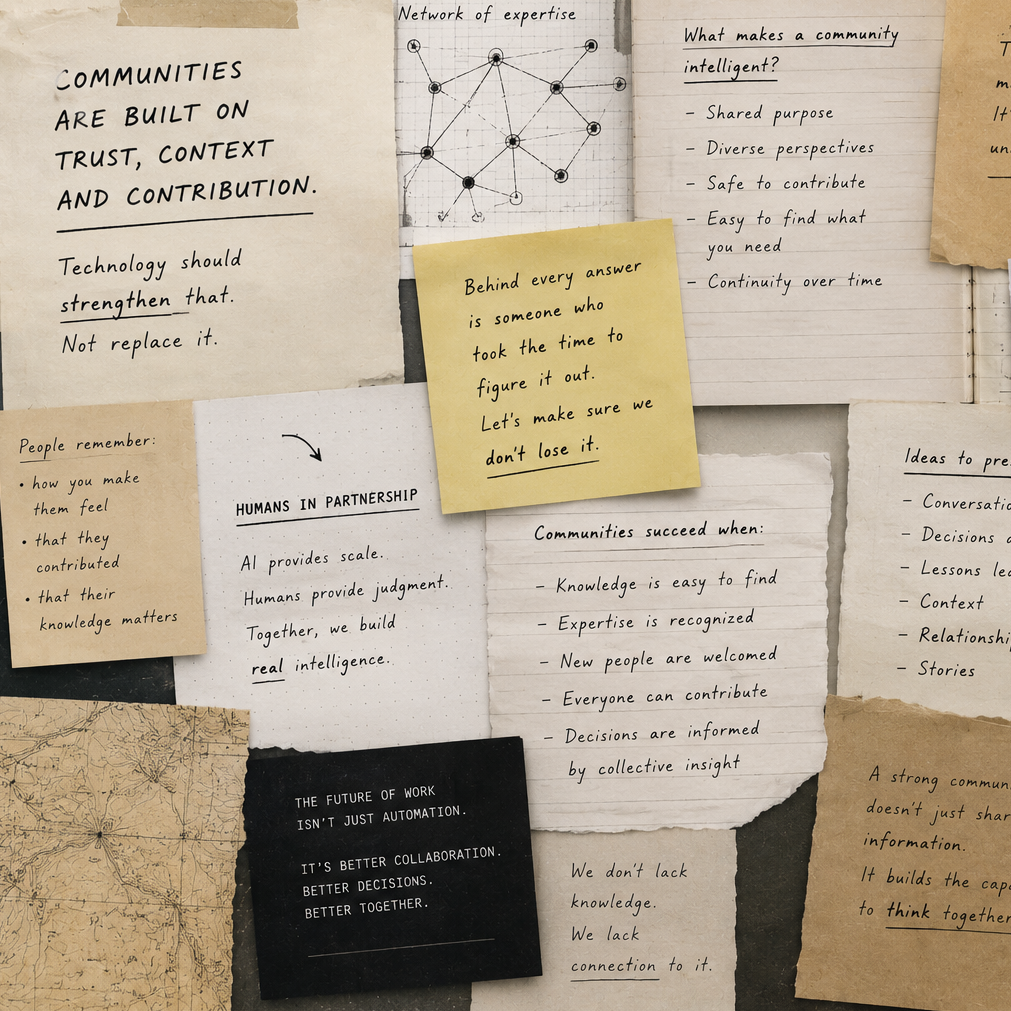 COMMUNITIES
ARE BUILT ON
TRUST, CONTEXT
AND CONTRIBUTION.
Technology should
strengthen that.
Not replace it.
Network of expertise
What makes a community
intelligent?
– Shared purpose
– Diverse perspectives
– Safe to contribute
– Easy to find what
you need
– Continuity over time
Behind every answer
is someone who
took the time to
figure it out.
Let's make sure we
don't lose it.
People remember:
• how you make
them feel
• that they
contributed
• that their
knowledge matters
HUMANS IN PARTNERSHIP
AI provides scale.
Humans provide judgment.
Together, we build
real intelligence.
Communities succeed when:
– Knowledge is easy to find
– Expertise is recognized
– New people are welcomed
– Everyone can contribute
– Decisions are informed
by collective insight
Ideas to
–
– Decisions
– Lessons
– Context
–
– Stories
THE FUTURE OF WORK
ISN'T JUST AUTOMATION.
IT'S BETTER COLLABORATION.
BETTER DECISIONS.
BETTER TOGETHER.
We don't lack
knowledge.
We lack
connection to it.
A strong
doesn't just
information.
It builds the
to think together